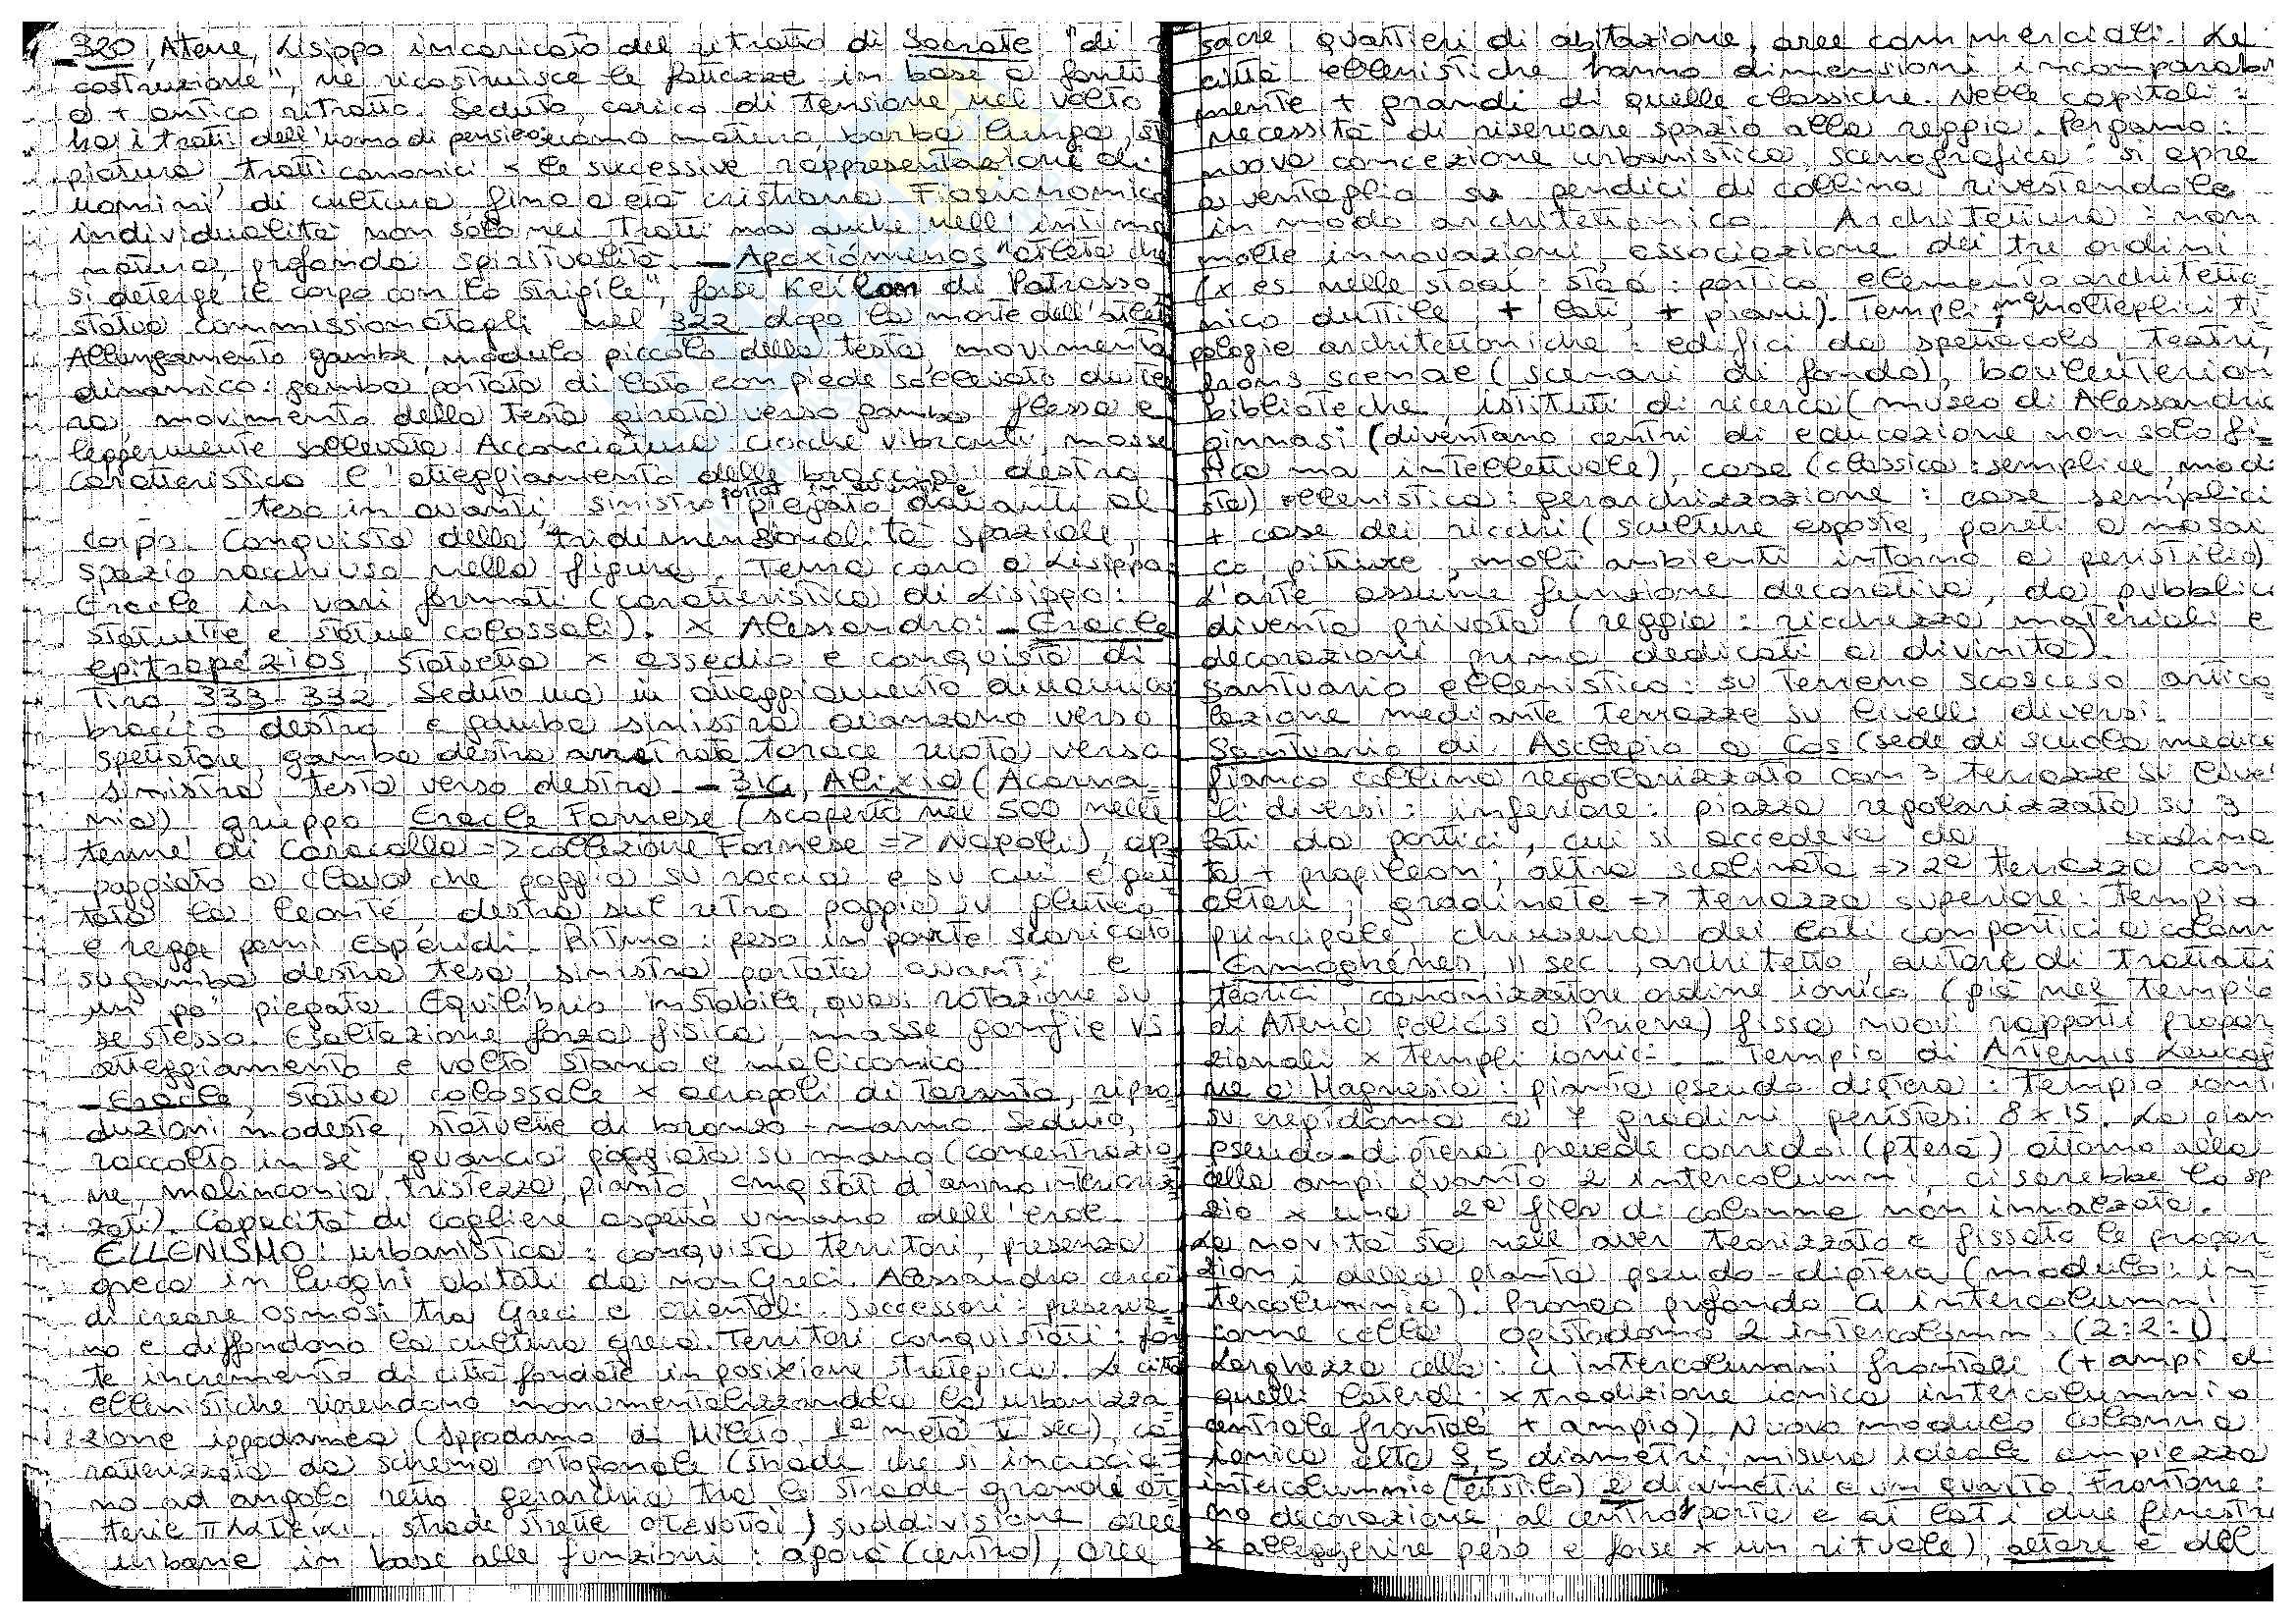 - 320, Atene, Lisippo incaricato del ritratto di Socrate "di
costruzione", ne ricostruisce le fattezze in base a fonti
o + antico ritratto. Seduto, carico di tensione nel volto
ha i tratti dell'uomo di pensiero: uomo maturo, barba lunga,
piatura, tratti canonici x le successive rappresentazioni di
uomini di cultura fino a età cristiana. Fisionomica
individualità non solo nei tratti ma anche nell'intima
natura, profonda spiritualità. - Apoxiómenos "atleta che
si deterge il corpo con lo strigile", forse Keilon di Patrasso
statua commissionatagli nel 322 dopo la morte dell'atleta
Allungamento gambe, modulo piccolo della testa, movimento
dinamico: gamba portata di lato con piede sollevato
ra, movimento della testa girata verso gamba flessa e
leggermente sollevata. Acconciatura ciocche vibranti, mosse
Caratteristico l'atteggiamento delle braccia: destro
teso in avanti, sinistro portato in avanti e piegato davanti al
corpo. Conquista della tridimensionalità spaziale,
spazio racchiuso nella figura. Tema caro a Lisippo:
Eracle in vari formati (caratteristica di Lisippo:
statuette e statue colossali). x Alessandro: - Eracle
epitrapézios, statuetta x assedio e conquista di
Tiro, 333-332. Seduto ma in atteggiamento dinamico
braccio destro e gamba sinistra avanzano verso
spettatore, gamba destra arretrata torace ruota verso
sinistra, testa verso destra. - 314, Alixia (Acarna=
nia) gruppo Eracle Farnese (scoperto nel 500 nelle
terme di Caracalla => collezione Farnese => Napoli), ap=
poggiato a clava che poggia su roccia e su cui è get
tata la leonté, destra sul retro poggia su gluteo
e regge pomi Esperidi. Ritmo: peso in parte scaricato
su gamba destra tesa, sinistra portata avanti e
un po' piegata. Equilibrio instabile, quasi rotazione su
se stesso. Esaltazione forza fisica, masse gonfie vs
atteggiamento e volto stanco e malinconico
- Eracle, statua colossale x acropoli di Taranto, ripro
duzioni modeste, statuette di bronzo - marmo. Seduto,
raccolto in sé, guancia poggiata su mano (concentrazio
ne, malinconia, tristezza, pianto, stati d'animo interioriz
zati). Capacità di cogliere aspetto umano dell'eroe.
ELLENISMO: urbanistica: conquista territori, presenza
greca in luoghi abitati da non Greci. Alessandro cercò
di creare osmosi tra Greci e orientali. Successori: preserva
no e diffondono la cultura greca. Territori conquistati: for
te incremento di città fondate in posizione strategica. Le città
ellenistiche riprendono monumentalizzandola la urbanizza
zione ippodamea (Ippodamo di Mileto, 1ª metà V sec), ca
ratterizzata da schema ortogonale (strade che si incrocia=
no ad angolo retto, gerarchia tra le strade - grandi ar
terie πλατεῖαι, strade strette stevopoi) suddivisione aree
urbane in base alle funzioni: agorà (centro), aree
sacre, quartieri di abitazione, aree commerciali. Le
città ellenistiche hanno dimensioni incomparabil
mente + grandi di quelle classiche. Nelle capitali:
necessità di riservare spazio alla reggia. Pergamo:
nuova concezione urbanistica, scenografica: si apre
a ventaglio su pendici di collina rivestendole
in modo architettonico. Architettura: non
molte innovazioni, associazione dei tre ordini
(x es. nelle stoai: stoá: portico elemento architetto
nico duttile, + lati, + piani). Templi, molteplici ti
pologie architettoniche: edifici da spettacolo, teatri,
frons scenae (scenari di fondo), bouleuterion
biblioteche, istituti di ricerca (museo di Alessandria
ginnasi (diventano centri di educazione non solo fi=
sica ma intellettuale), case (classica: semplice, mode
sta) ellenistica: gerarchizzazione: case semplici
+ case dei ricchi (sculture esposte, pareti a mosai
co, pitture, molti ambienti intorno a peristilio)
L'arte assume funzione decorativa, da pubblica
diventa privata (reggia: ricchezza materiali e
decorazioni prima dedicati a divinità).
Santuario ellenistico: su terreno scosceso artico
lazione mediante terrazze su livelli diversi.
Santuario di Asclepio a Cos (sede di scuola medica
fianco collina regolarizzato con 3 terrazze su livel
li diversi: inferiore: piazza regolarizzata su 3
lati da portici, cui si accedeva da scalina
ta + propileon; altra scalinata => 2ª terrazza con
altare; gradinate => terrazza superiore: tempio
principale, chiusura dei lati con portici a colonn
- Ermoghénes, II sec., architetto, autore di trattati
teorici, canonizzatore ordine ionico (già nel tempio
di Atena Poliás a Priene) fissa nuovi rapporti propor
zionali x templi ionici. - Tempio di Artemis Leucofr
ne a Magnesia: pianta pseudo-diptera: tempio ioni
su crepidoma a 7 gradini, peristasi 8x15. La pian
pseudo-diptera prevede corridoi (pterá) attorno alla
cella ampi quanto 2 intercolumni, ci sarebbe lo spa
zio x una 2ª fila di colonne non innalzata.
La novità sta nell'aver teorizzato e fissato le propor
zioni della pianta pseudo-diptera (modulo: in=
tercolumnio). Pronao profondo 4 intercolumni
come cella, opistodomo 2 intercolumni (2:2:1).
Larghezza cella: 4 intercolumni frontali (+ ampi di
quelli laterali; x tradizione ionica intercolumnio
centrale frontale + ampio). Nuovo modulo colonna
ionica alta 9,5 diametri; misura ideale ampiezza
intercolumnio (éustilo) 2 diametri e un quarto. Frontone:
no decorazione, al centro porta e ai lati due finestre
x alleggerire peso e forse x un rituale), altare è del